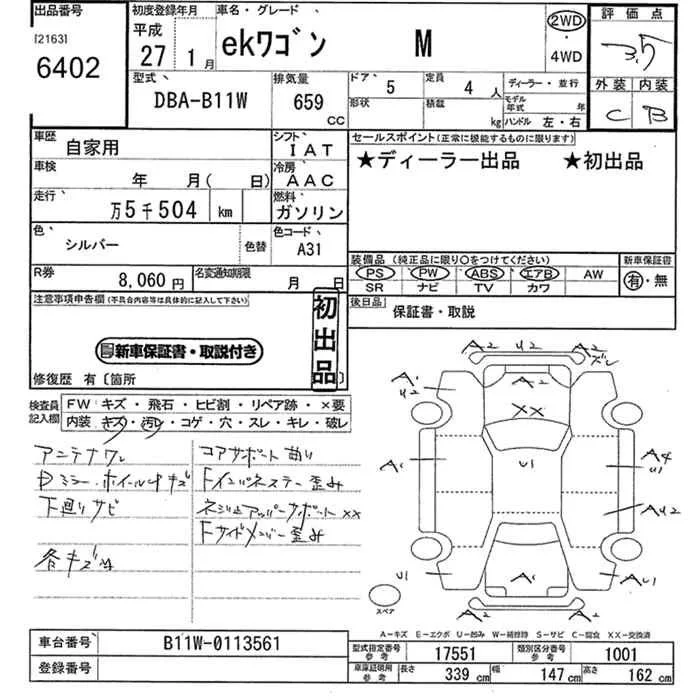 出品番号 初度登録年月 車名・グレード 評価点
[2163] 平成 2WD
6402 27 1月 ekワゴン M ・ 3.5
4WD
型式 排気量 ドア 5 定員 4人 ディーラー・並行 外装 内装
DBA-B11W 659 CC 形状 積載 kg モデル年式 年 C B
ハンドル 左・右
車歴 自家用 シフト IAT セールスポイント(正常に機能するものに限ります)
車検 年 月( 日) 冷房 AAC ★ディーラー出品 ★初出品
走行 万5千504 km 燃料 ガソリン
色 シルバー 色替 色コード A31
装備品 (純正品に限り○をつけてください) 新車保証書
PS PW ABS エアB AW 有・無
SR ナビ TV カワ
R券 8,060円 名変通知期限 月 日
後日品 保証書・取説
注意事項申告欄(不具合内容等は具体的に記入して下さい)
初出品
新車保証書・取説付き
修復歴 有〔箇所
検査員記入欄 FW キズ・飛石・ヒビ割・リペア跡・×要
内装 キズ・汚レ・コゲ・穴・スレ・キレ・破レ
アンテナワレ コアサポート曲り
Dミラー・ホイール4キズ Fインパネステー歪み
下廻りサビ ネジ止アッパーサポートXX
Fサイドメンバー歪み
各キズ凹
A2 U2 A2
ズレ
A1 U2 XX A1
A1 U1 A4 U1
AU2
U1 A1 AU1
A2 A2
スペア
A-キズ E-エクボ U-凹み W-補修跡 S-サビ C-腐食 XX-交換済
車台番号 B11W-0113561 型式指定番号 参考 17551 類別区分番号 参考 1001
登録番号 車庫証明用 参考 長さ 339 cm 幅 147 cm 高さ 162 cm